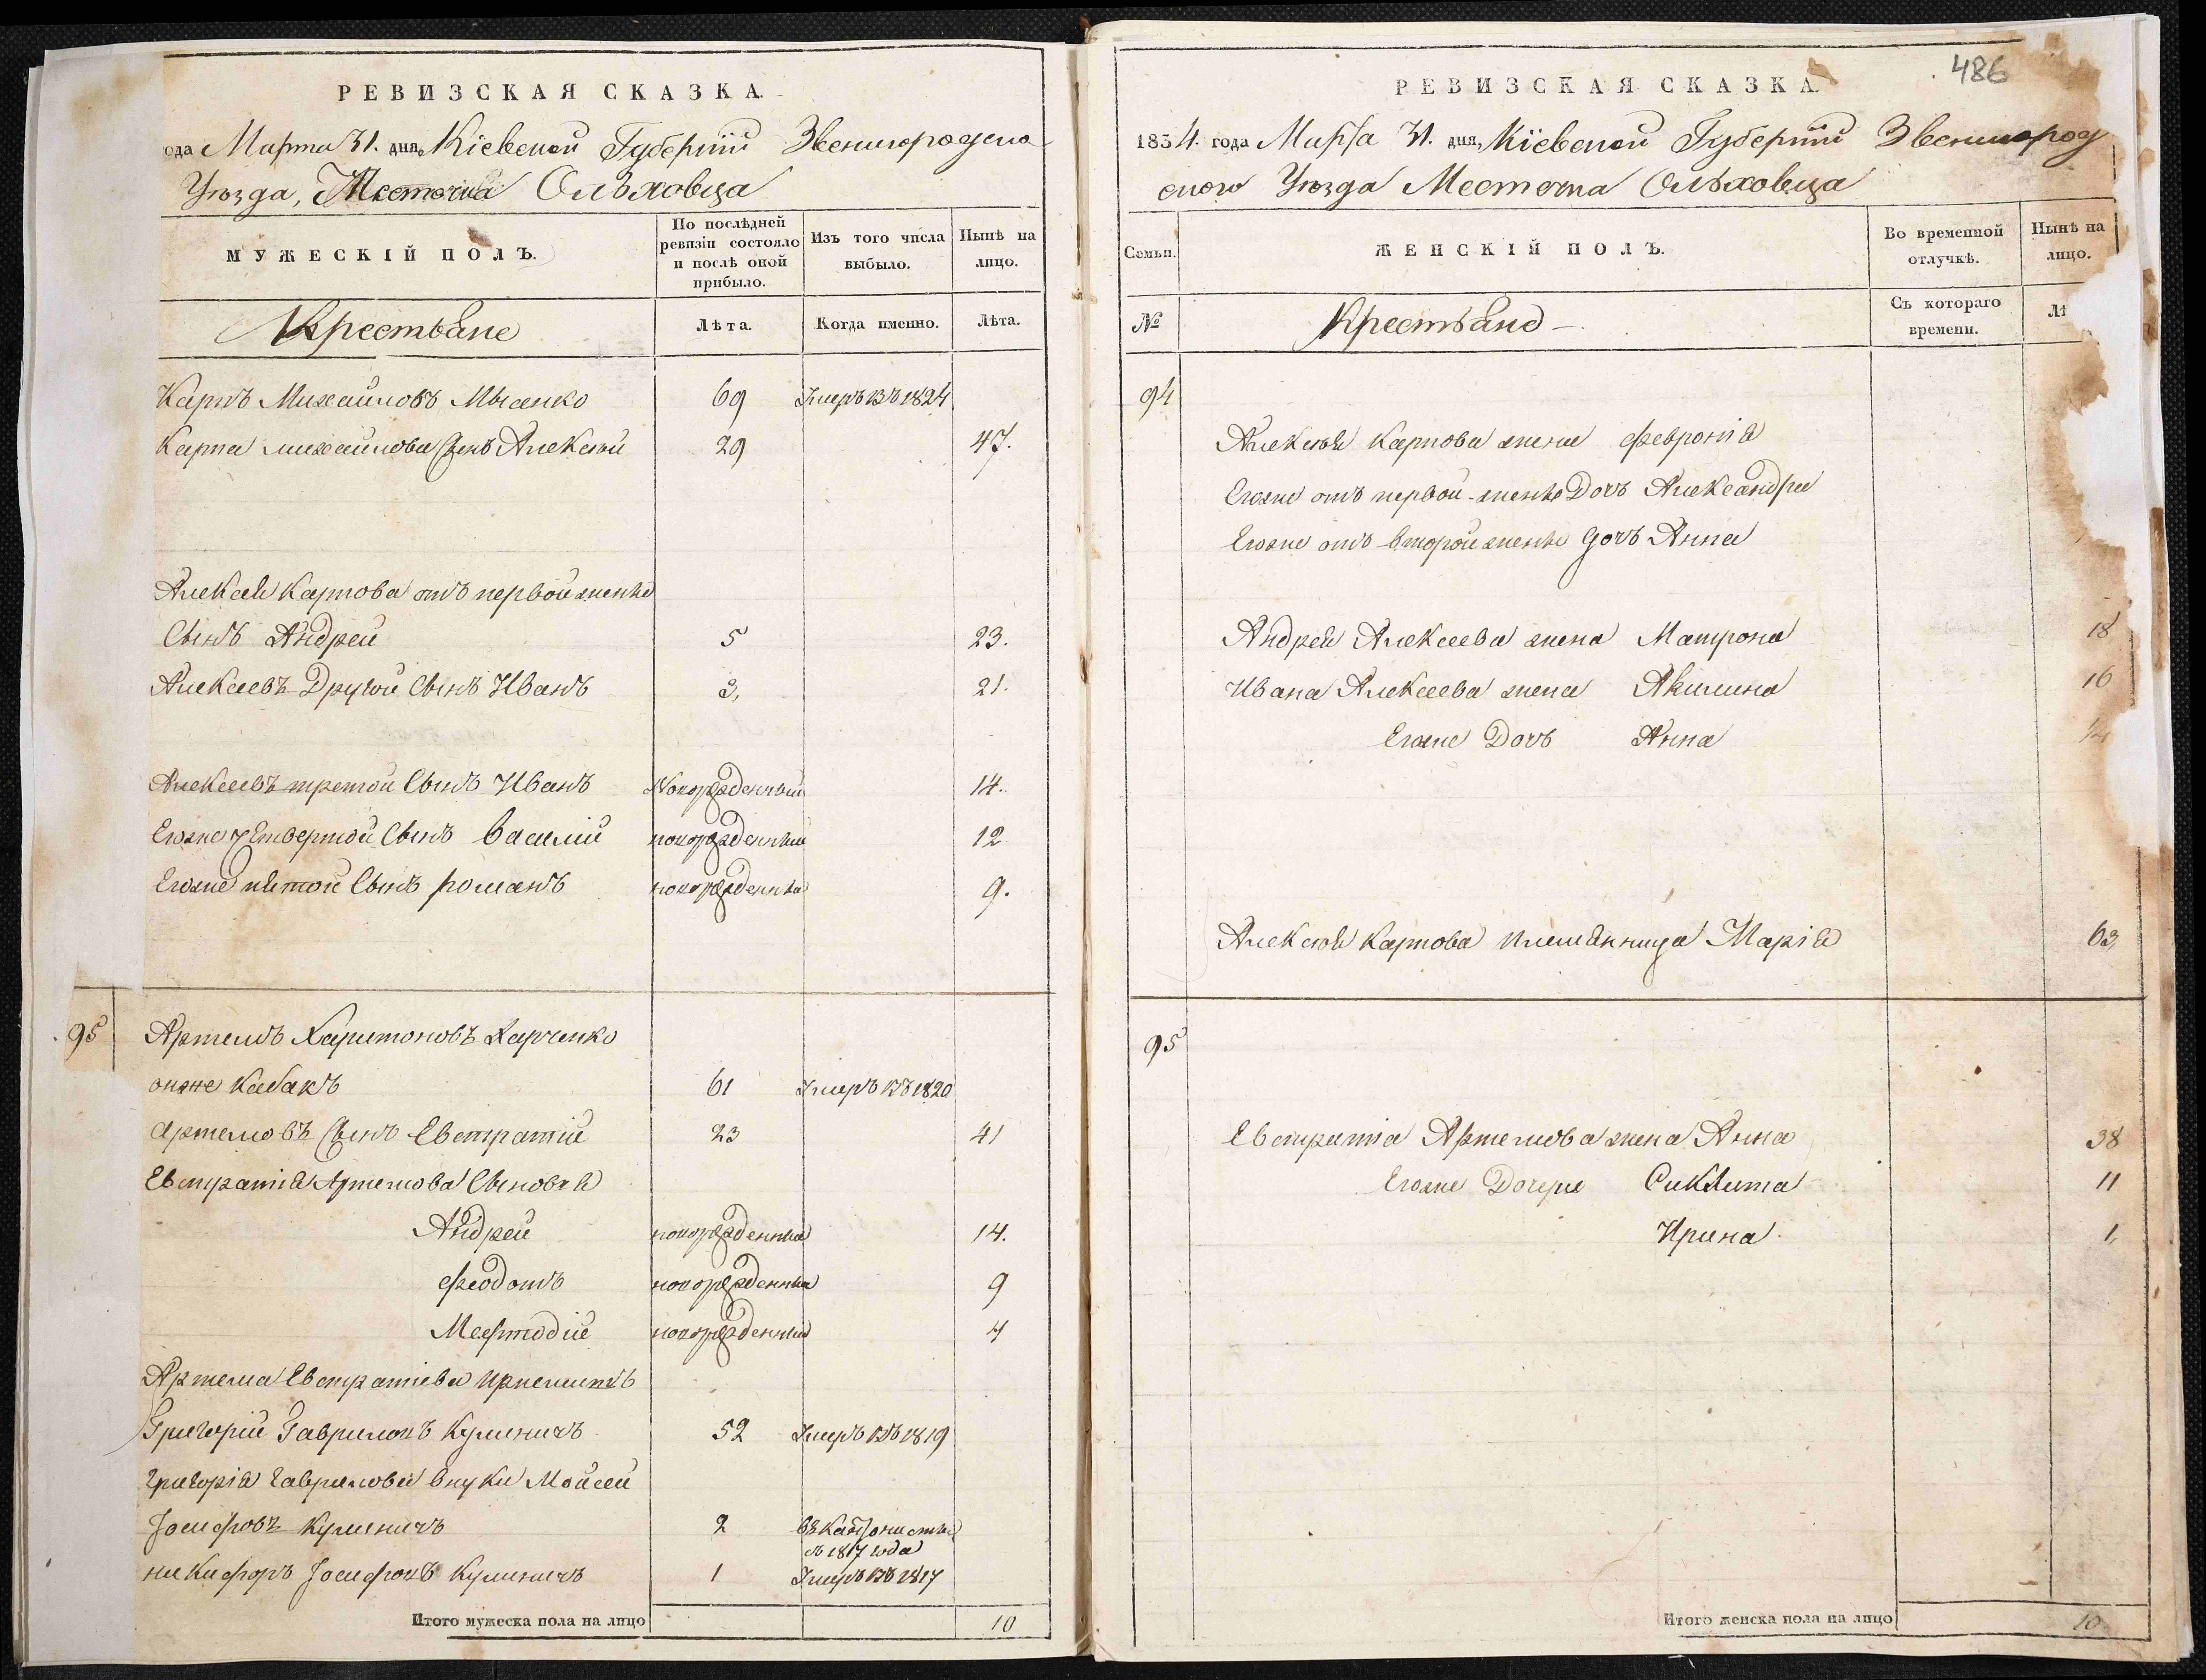 РЕВИЗСКАЯ СКАЗКА.
ода Марта 31. дня, Кіевской Губерніи Звенигородского
Уѣзда, Местечка Ольховца
МУЖЕСКІЙ ПОЛЪ.
По послѣдней ревизіи состояло и послѣ оной прибыло.
Изъ того числа выбыло.
Нынѣ на лицо.
Крестьяне
Лѣта.
Когда именно.
Лѣта.
Карпъ Михайловъ 69 Умеръ въ 1824
Карпа михайлова Сынъ Алексѣй 29 47.
Алексея Карпова отъ первой жены
Сынъ Андрей 5 23.
Алексеевъ Другой Сынъ Иванъ 3, 21.
Алексеевъ третой Сынъ Иванъ Новорожденный 14.
Егоже четвертой Сынъ Василій новорожденный 12
Егоже пятой Сынъ романъ новорожденный 9.
95 Артемъ Харитоновъ Харченко
онже Кабакъ 61 Умеръ въ 1820
Артемовъ Сынъ Евстратій 23 41
Евстратія Артемова Сыновья
Андрей новорожденный 14.
Феодотъ новорожденный 9
Мефтодіе новорожденный 4
Артема Евстратіева
Григорій Гавриловъ Кулиничъ 52 Умеръ въ 1819
григорія гаврилова внуки Мойсей
Іосифовъ Кулиничъ 2 въ Кантонисты
съ 1817 года
никифоръ Іосифовъ Кулиничъ 1 Умеръ въ 1817
Итого мужеска пола на лицо 10
486
РЕВИЗСКАЯ СКАЗКА.
1834. года Марта 31. дня, Кіевской Губерніи Звенигород
ского Уѣзда Местечка Ольховца
Семьи.
ЖЕНСКІЙ ПОЛЪ.
Во временной отлучкѣ.
Нынѣ на лицо.
№
Крестьяне
Съ котораго времени.
Лѣ
94
Алексѣя Карпова жена Февронія
Егоже отъ первой жены Дочъ Александра
Егоже отъ второй жены дочъ Анна
Андрея Алексеева жена Матрона 18
Ивана Алексеева жена Акилина 16
Егоже Дочъ Анна
Алексѣя Карпова племянница Марія 63,
95
Евстратіа Артемова жена Анна 38
Егоже Дочери Сиклита 11
Ирина. 1,
Итого женска пола на лицо 10